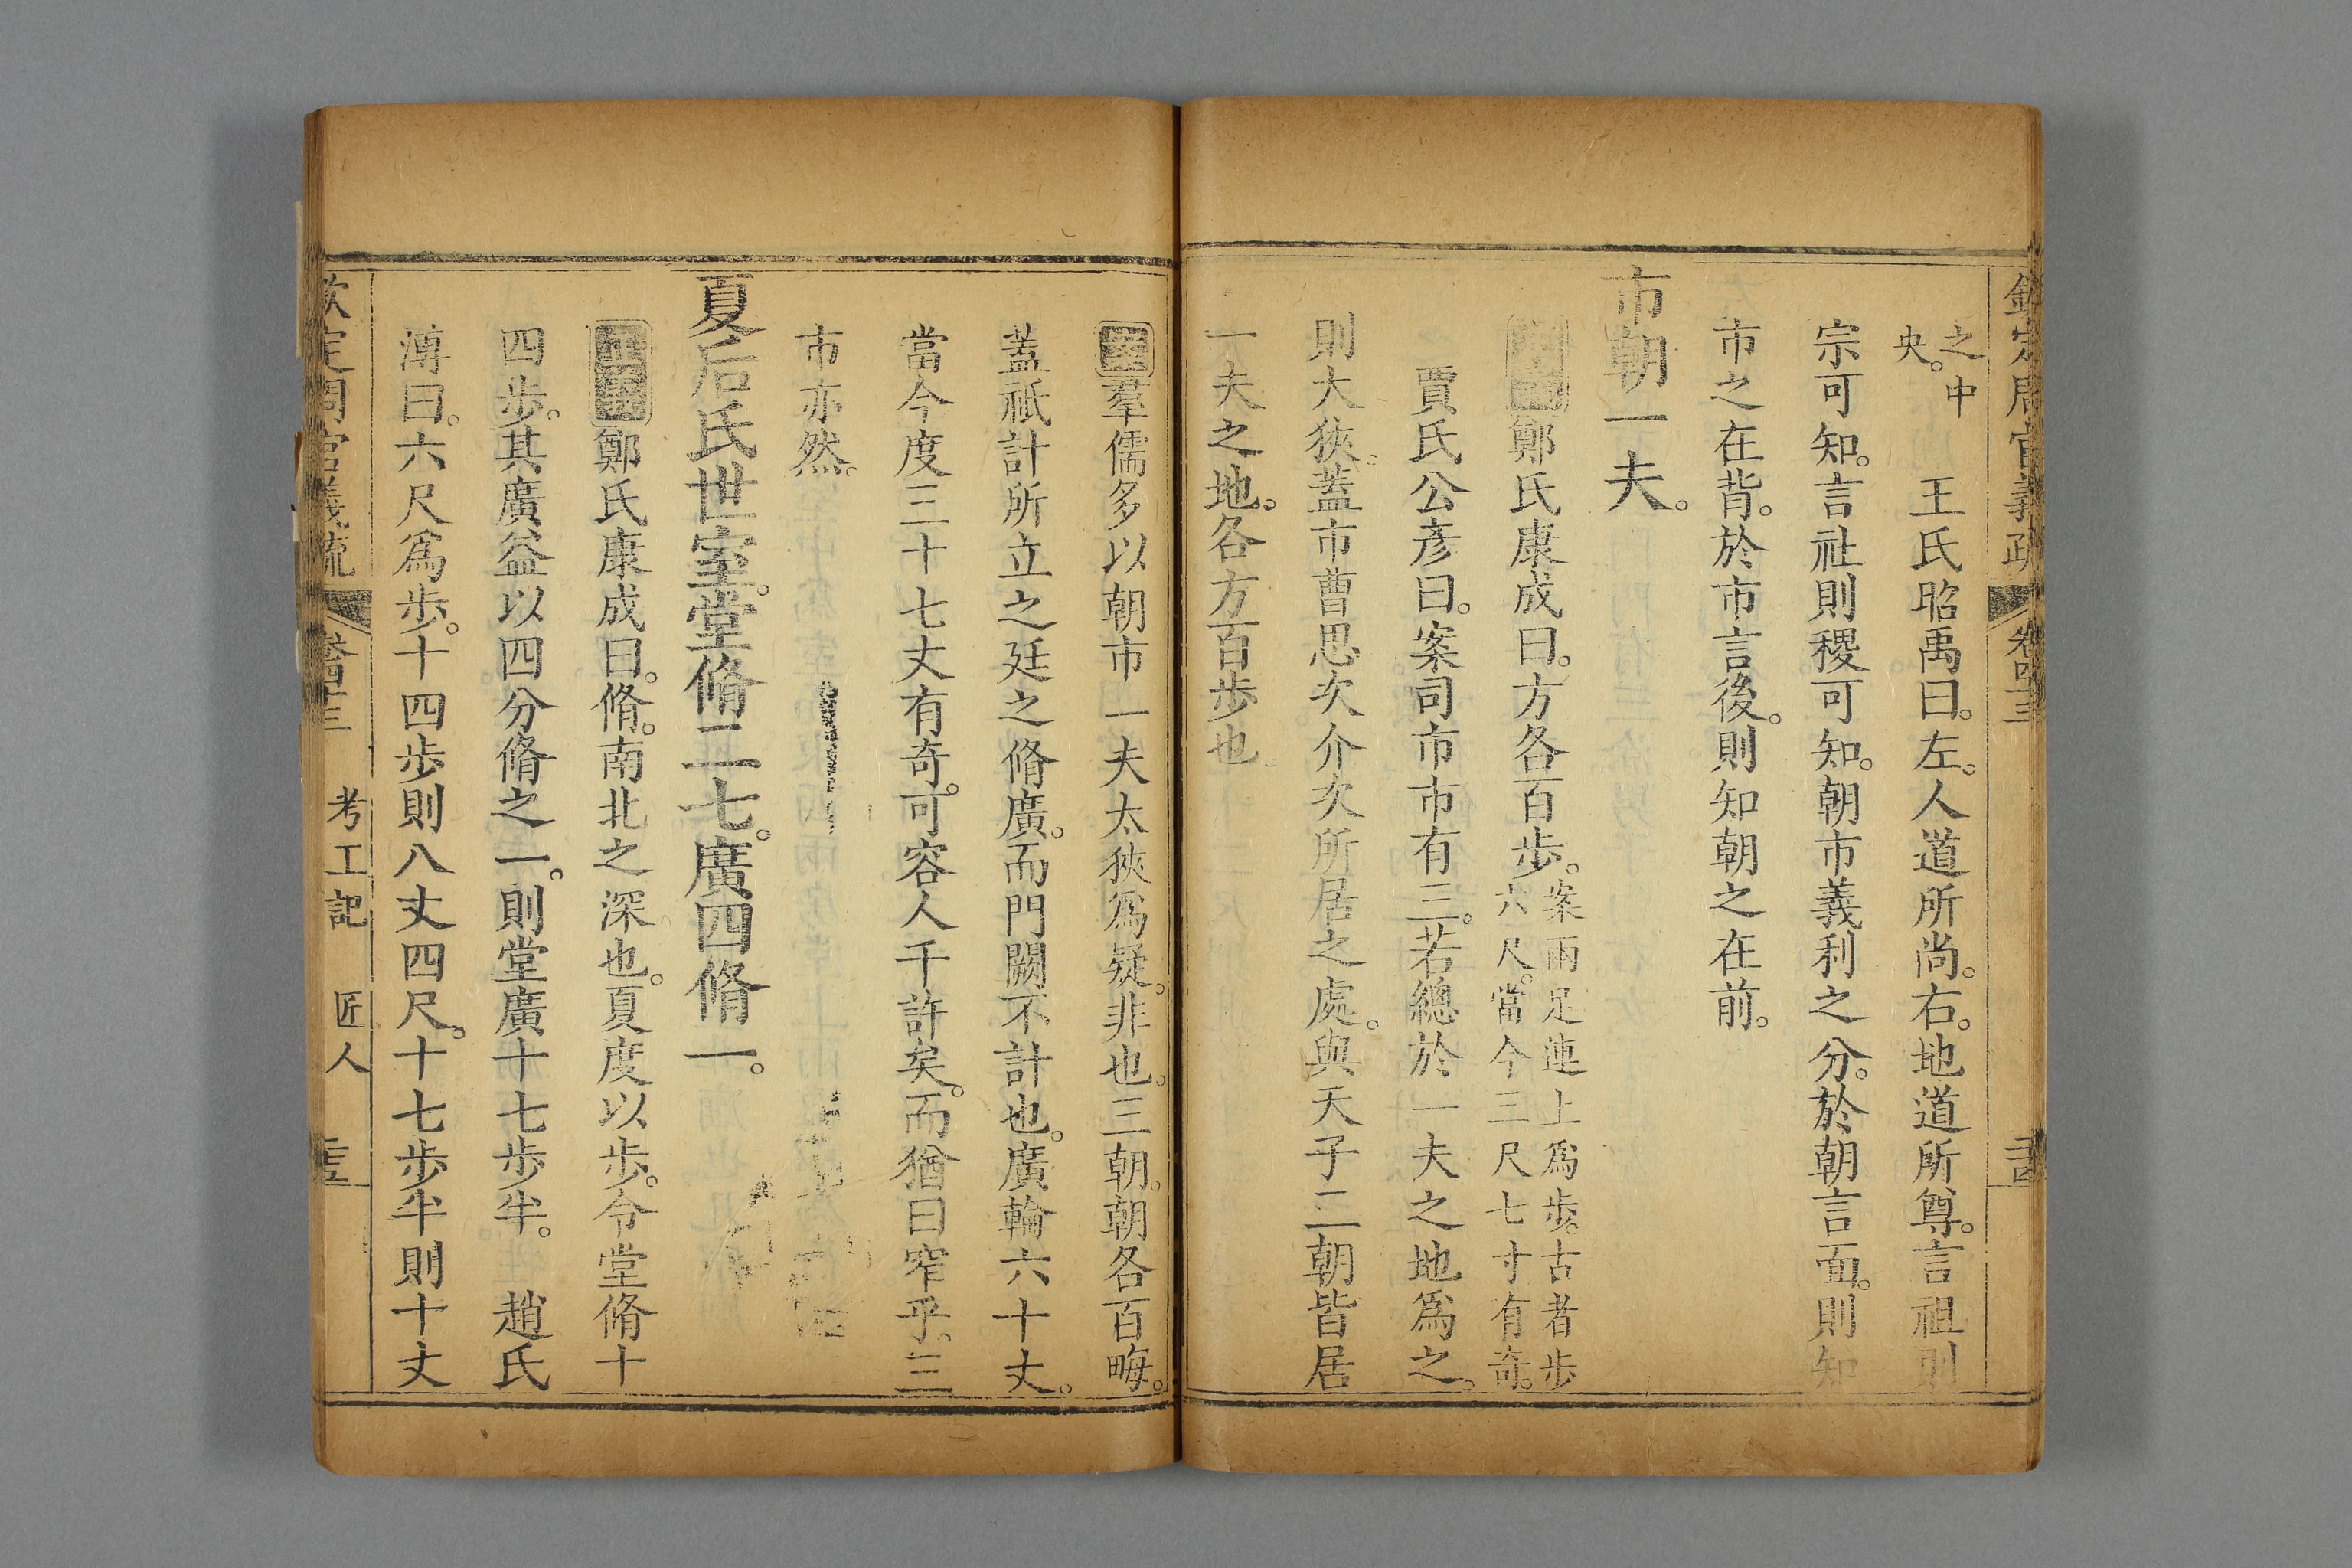 欽定周官義疏 卷四十三 二十四
之中央。 王氏昭禹曰。左。人道所尚。右。地道所尊。言祖則
宗可知。言社則稷可知。朝市義利之分。於朝言面。則知
市之在背。於市言後。則知朝之在前。
市朝一夫。
鄭氏康成曰。方各百步。案兩足連上爲步。古者步
六尺。當今三尺七寸有奇。
賈氏公彥曰。案司市市有三。若總於一夫之地爲之。
則大狹。蓋市曹思次介次所居之處。與天子二朝皆居
一夫之地。各方百步也
羣儒多以朝市一夫太狹爲疑。非也。三朝。朝各百畮。
蓋祇計所立之廷之脩廣。而門闕不計也。廣輪六十丈。
當今度三十七丈有奇。可容人千許矣。而猶曰窄乎。三
市亦然。
夏后氏世室。堂脩二七。廣四脩一。
鄭氏康成曰。脩。南北之深也。夏度以步。令堂脩十
四步。其廣益以四分脩之一。則堂廣十七步半。 趙氏
溥曰。六尺爲步。十四步則八丈四尺。十七步半則十丈
欽定周官義疏 卷四十三 考工記 匠人